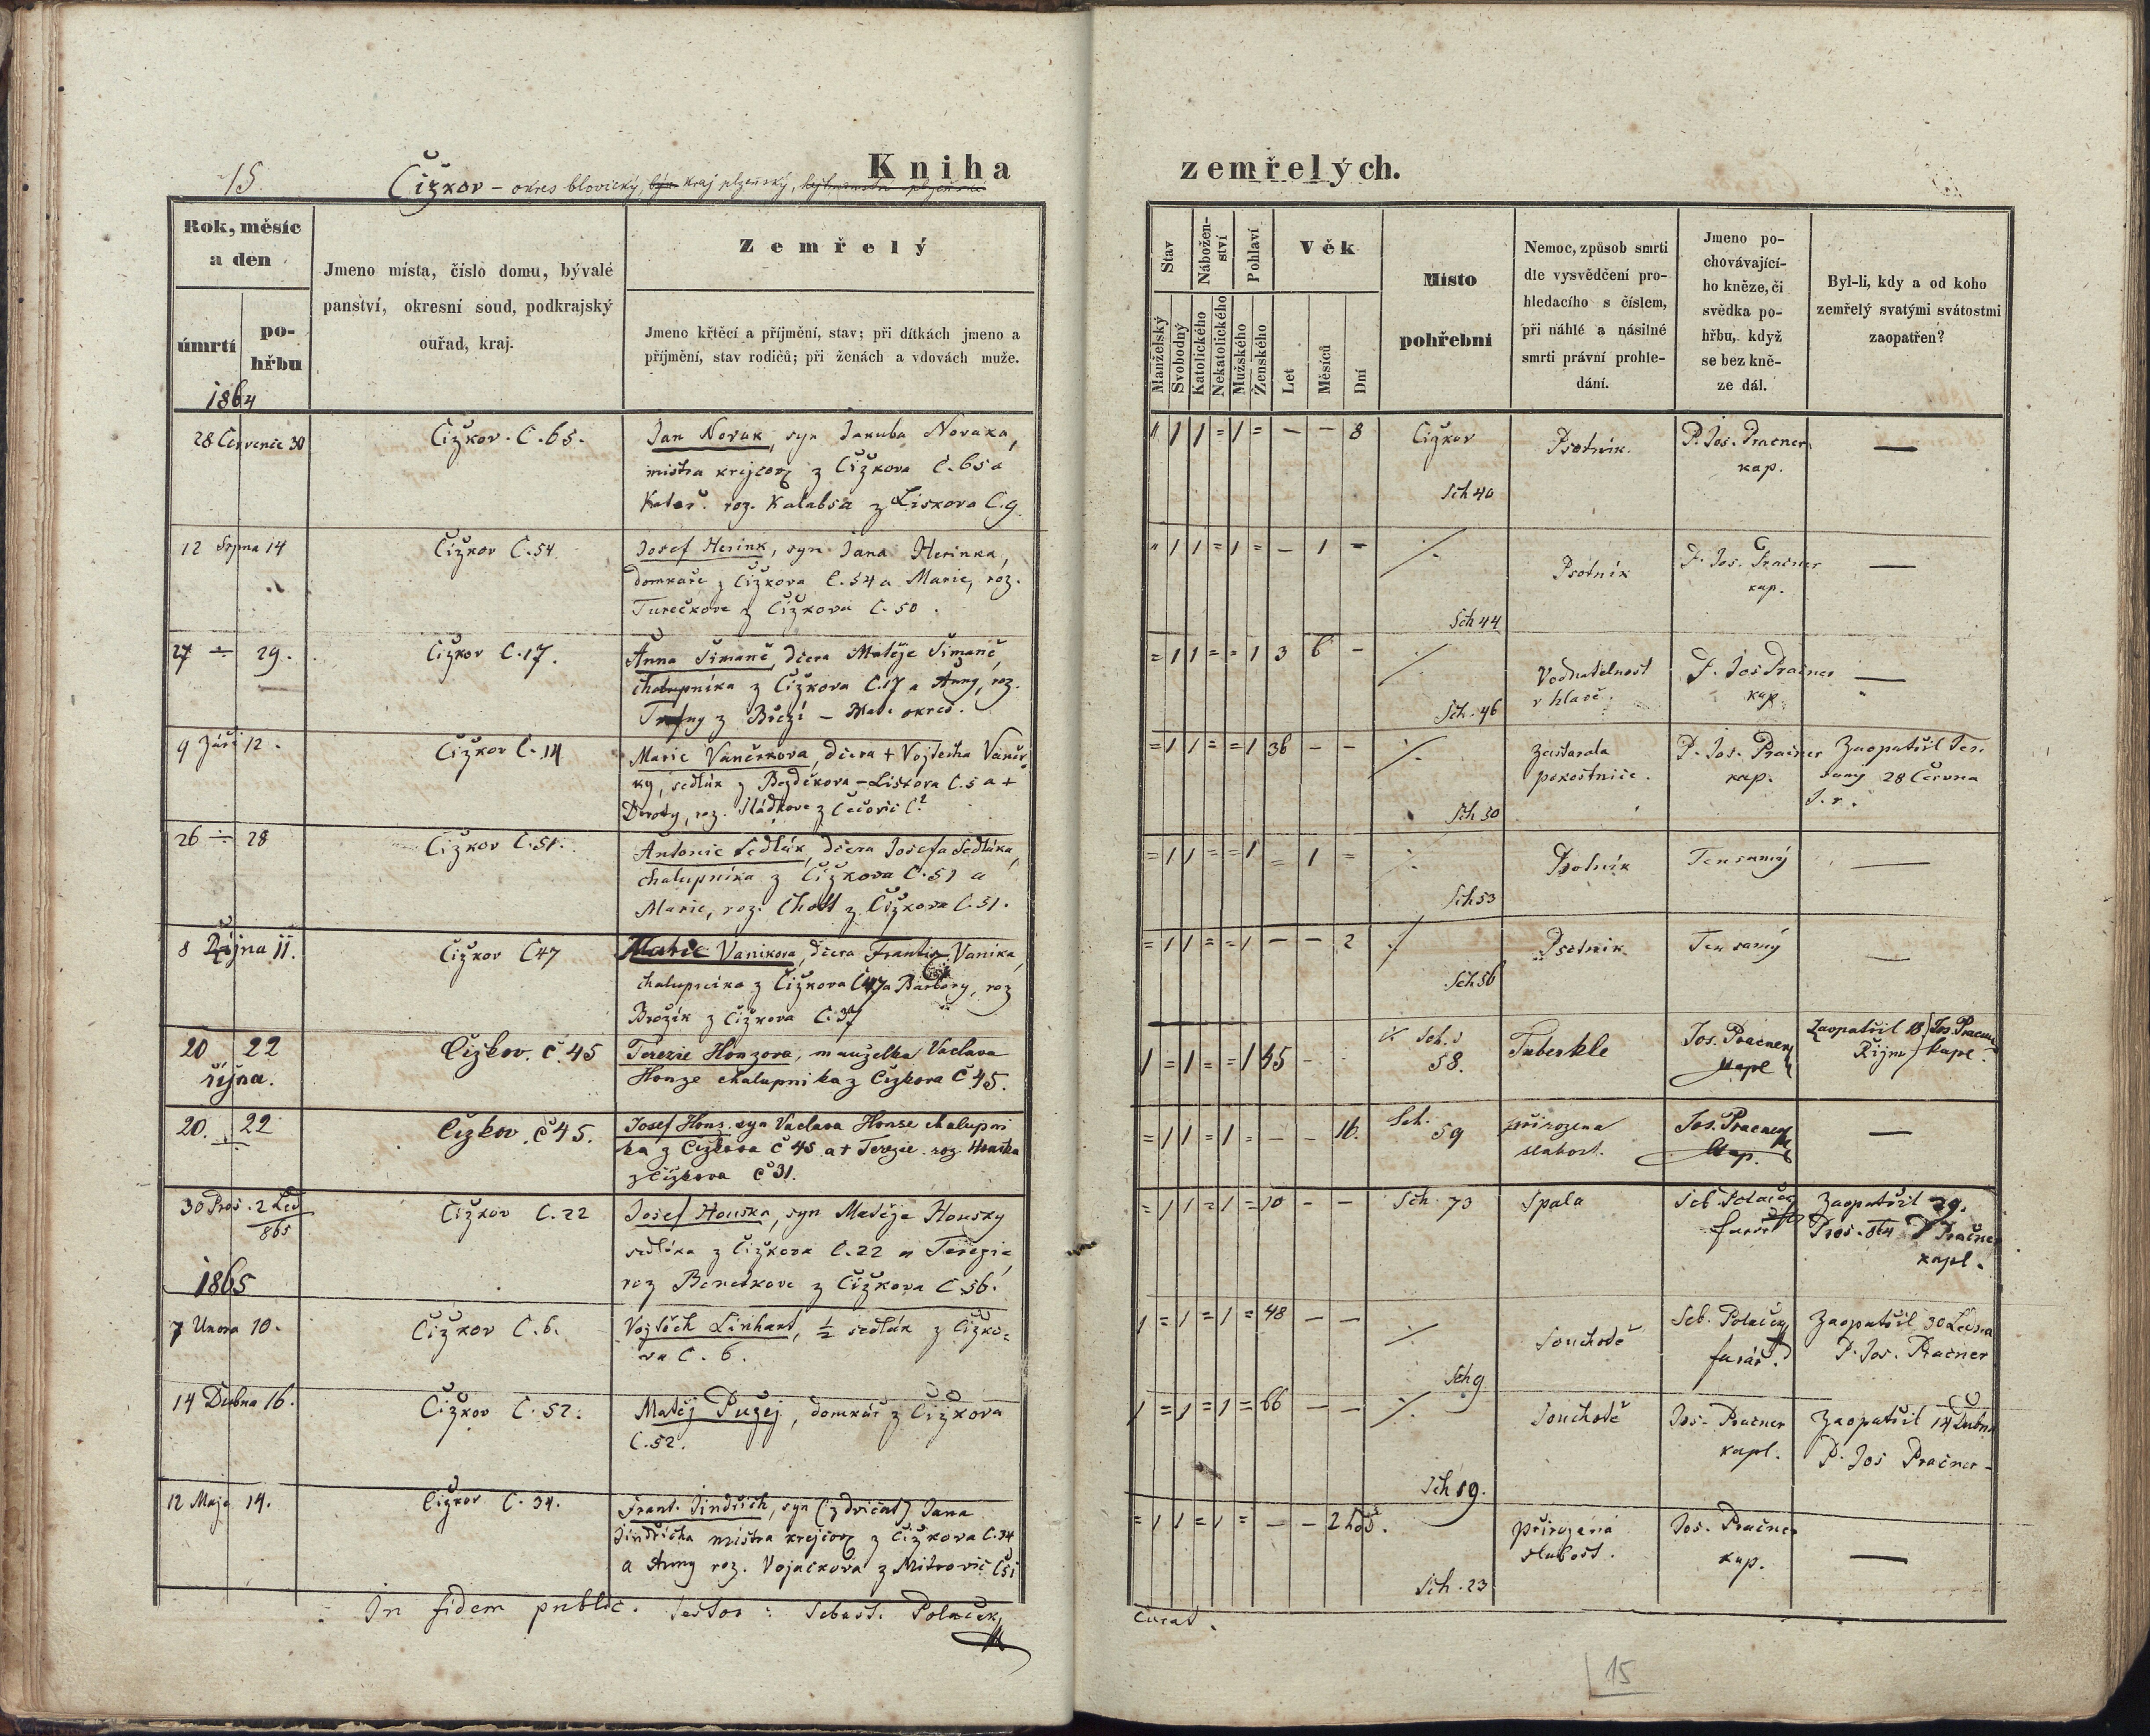 15.
Čižkov – okres blovický, kraj plzeňský,
Kniha
zemřelých.
Rok, měsíc
a den
úmrtí
po-
hřbu
Jmeno místa, číslo domu, bývalé
panství, okresní soud, podkrajský
ouřad, kraj.
Zemřelý
Jmeno křtěcí a příjmění, stav; při dítkách jmeno a
příjmění, stav rodičů; při ženách a vdovách muže.
Stav
Manželský
Svobodný
Nábožen-
ství
Katolického
Nekatolického
Pohlaví
Mužského
Ženského
Věk
Let
Měsíců
Dní
Místo
pohřební
Nemoc, způsob smrti
dle vysvědčení pro-
hledacího s číslem,
při náhlé a násilné
smrti právní prohle-
dání.
Jmeno po-
chovávající-
ho kněze, či
svědka po-
hřbu, když
se bez kně-
ze dál.
Byl-li, kdy a od koho
zemřelý svatými svátostmi
zaopatřen?
1864
28 Červenec 30
Čižkov. C. 65.
Jan Novak, syn Jakuba Novaka,
mistra krejčov z Čižkova C. 65 a
Kateř. roz. Kalabsa z Liskova C. 9
" 1 1 = 1 = – – 8
Čižkov
Sch 40
Psotnik.
P. Jos. Pracner
kap.
—
12 Srpna 14
Čižkov C. 54
Josef Herink, syn Jana Herinka,
domkaře z Čižkova C. 54 a Marie, roz.
Turečkove z Čižkova C. 50.
" 1 1 = 1 = – 1 –
Sch 44
Psotnik
P. Jos. Pračner
kap.
—
27 ÷ 29.
Čižkov C. 17.
Anna Šimaně, dcera Matěje Šimaně,
chalupníka z Čižkova C. 17 a Anny, roz.
z Březí –
= 1 1 = = 1 3 6 –
Sch. 46
Vodnatelnost
v hlavě.
P. Jos Pračner
kap.
—
9 Září 12.
Čižkov C. 14
Marie Vaněčkova, dcera + Vojtěcha Vaněč-
ky, sedlák z Bezděkova – Liskova C. 5 a +
Doroty, roz. Sládkove z Čečovic C.?
= 1 1 = = 1 36 – –
Sch 50
Zastarala
pakostnice.
P. Jos. Pračner
kap.
Zaopatřil Ten
samý 28 Června
t. r.
26 ÷ 28
Čižkov C. 51.
Antonie Sedlák, dcera Josefa Sedláka,
chalupníka z Čižkova C. 51 a
Marie, roz. Chott z Čižkova C. 51.
= 1 1 = = 1 = 1 =
Sch 53
Psotnik
Ten samý
—
8 Října 11.
Čižkov C 47
Marie Vanikova, dcera Františ. Vanika,
chalupníka z Čižkova C 47 a Barbory, roz
Brožík z Čižkova C. 37
= 1 1 = = 1 – – 2
Sch 56
Psotnik
Ten samý
—
20 22
října.
Čižkov. č. 45
Terezie Honzova, manželka Vaclava
Honze chalupnika z Čižkova č 45.
1 = 1 = = 1 45 – –
Sch.
58.
Tuberkle
Jos. Pračner
kapl
Zaopatřil 18 Jos. Pracner
Říjn kapl.
20. 22
Čižkov. č 45.
Josef Hons. syn Vaclava Honse chalupni
ka z Čižkova č 45 a + Terezie roz. Houska
z Čižkova č 31.
= 1 1 = 1 = – – 16.
Sch.
59
přirozena
slabost.
Jos. Pracner
kap.
—
30 Pros. 2 Led
865
Čižkov C. 22
Josef Houska, syn Matěje Housky
sedláka z Čižkova C. 22 a Terezie,
roz Benetkove z Čižkova C 56.
= 1 1 = 1 = 10 – –
Sch 73
Spala
Seb. Polaček
farář
Zaopatřil 29.
Pros. 864 P Pračner
kapl.
1865
7 Unora 10.
Čižkov C. 6.
Vojtěch Linhart, ½ sedlák z Čižko=
va C. 6.
1 = 1 = 1 = 48 – –
Sch 9
Souchotě
Seb. Polaček
farář.
Zaopatřil 30 Ledna
P. Jos. Pračner
14 Dubna 16.
Čižkov C. 52.
Matěj Puzej, domkář z Čižkova
C. 52.
1 = 1 = 1 = 66 – –
Sch 19.
Souchotě
Jos. Pračner
kapl.
Zaopatřil 14 Dubna
P. Jos Pračner
12 Maje 14.
Čižkov C. 34.
Frant. Jindřich, syn (z dvičat) Jana
Jindřicha mistra krejčov z Čižkova C. 34
a Anny roz. Vojačkova z Mitrovic
= 1 1 = 1 = – – 2 hod.
Sch. 23
přirozená
slabost.
Jos. Pračner
kap.
—
In fidem public. testor: Sebast. Polaček,
Curat.
15